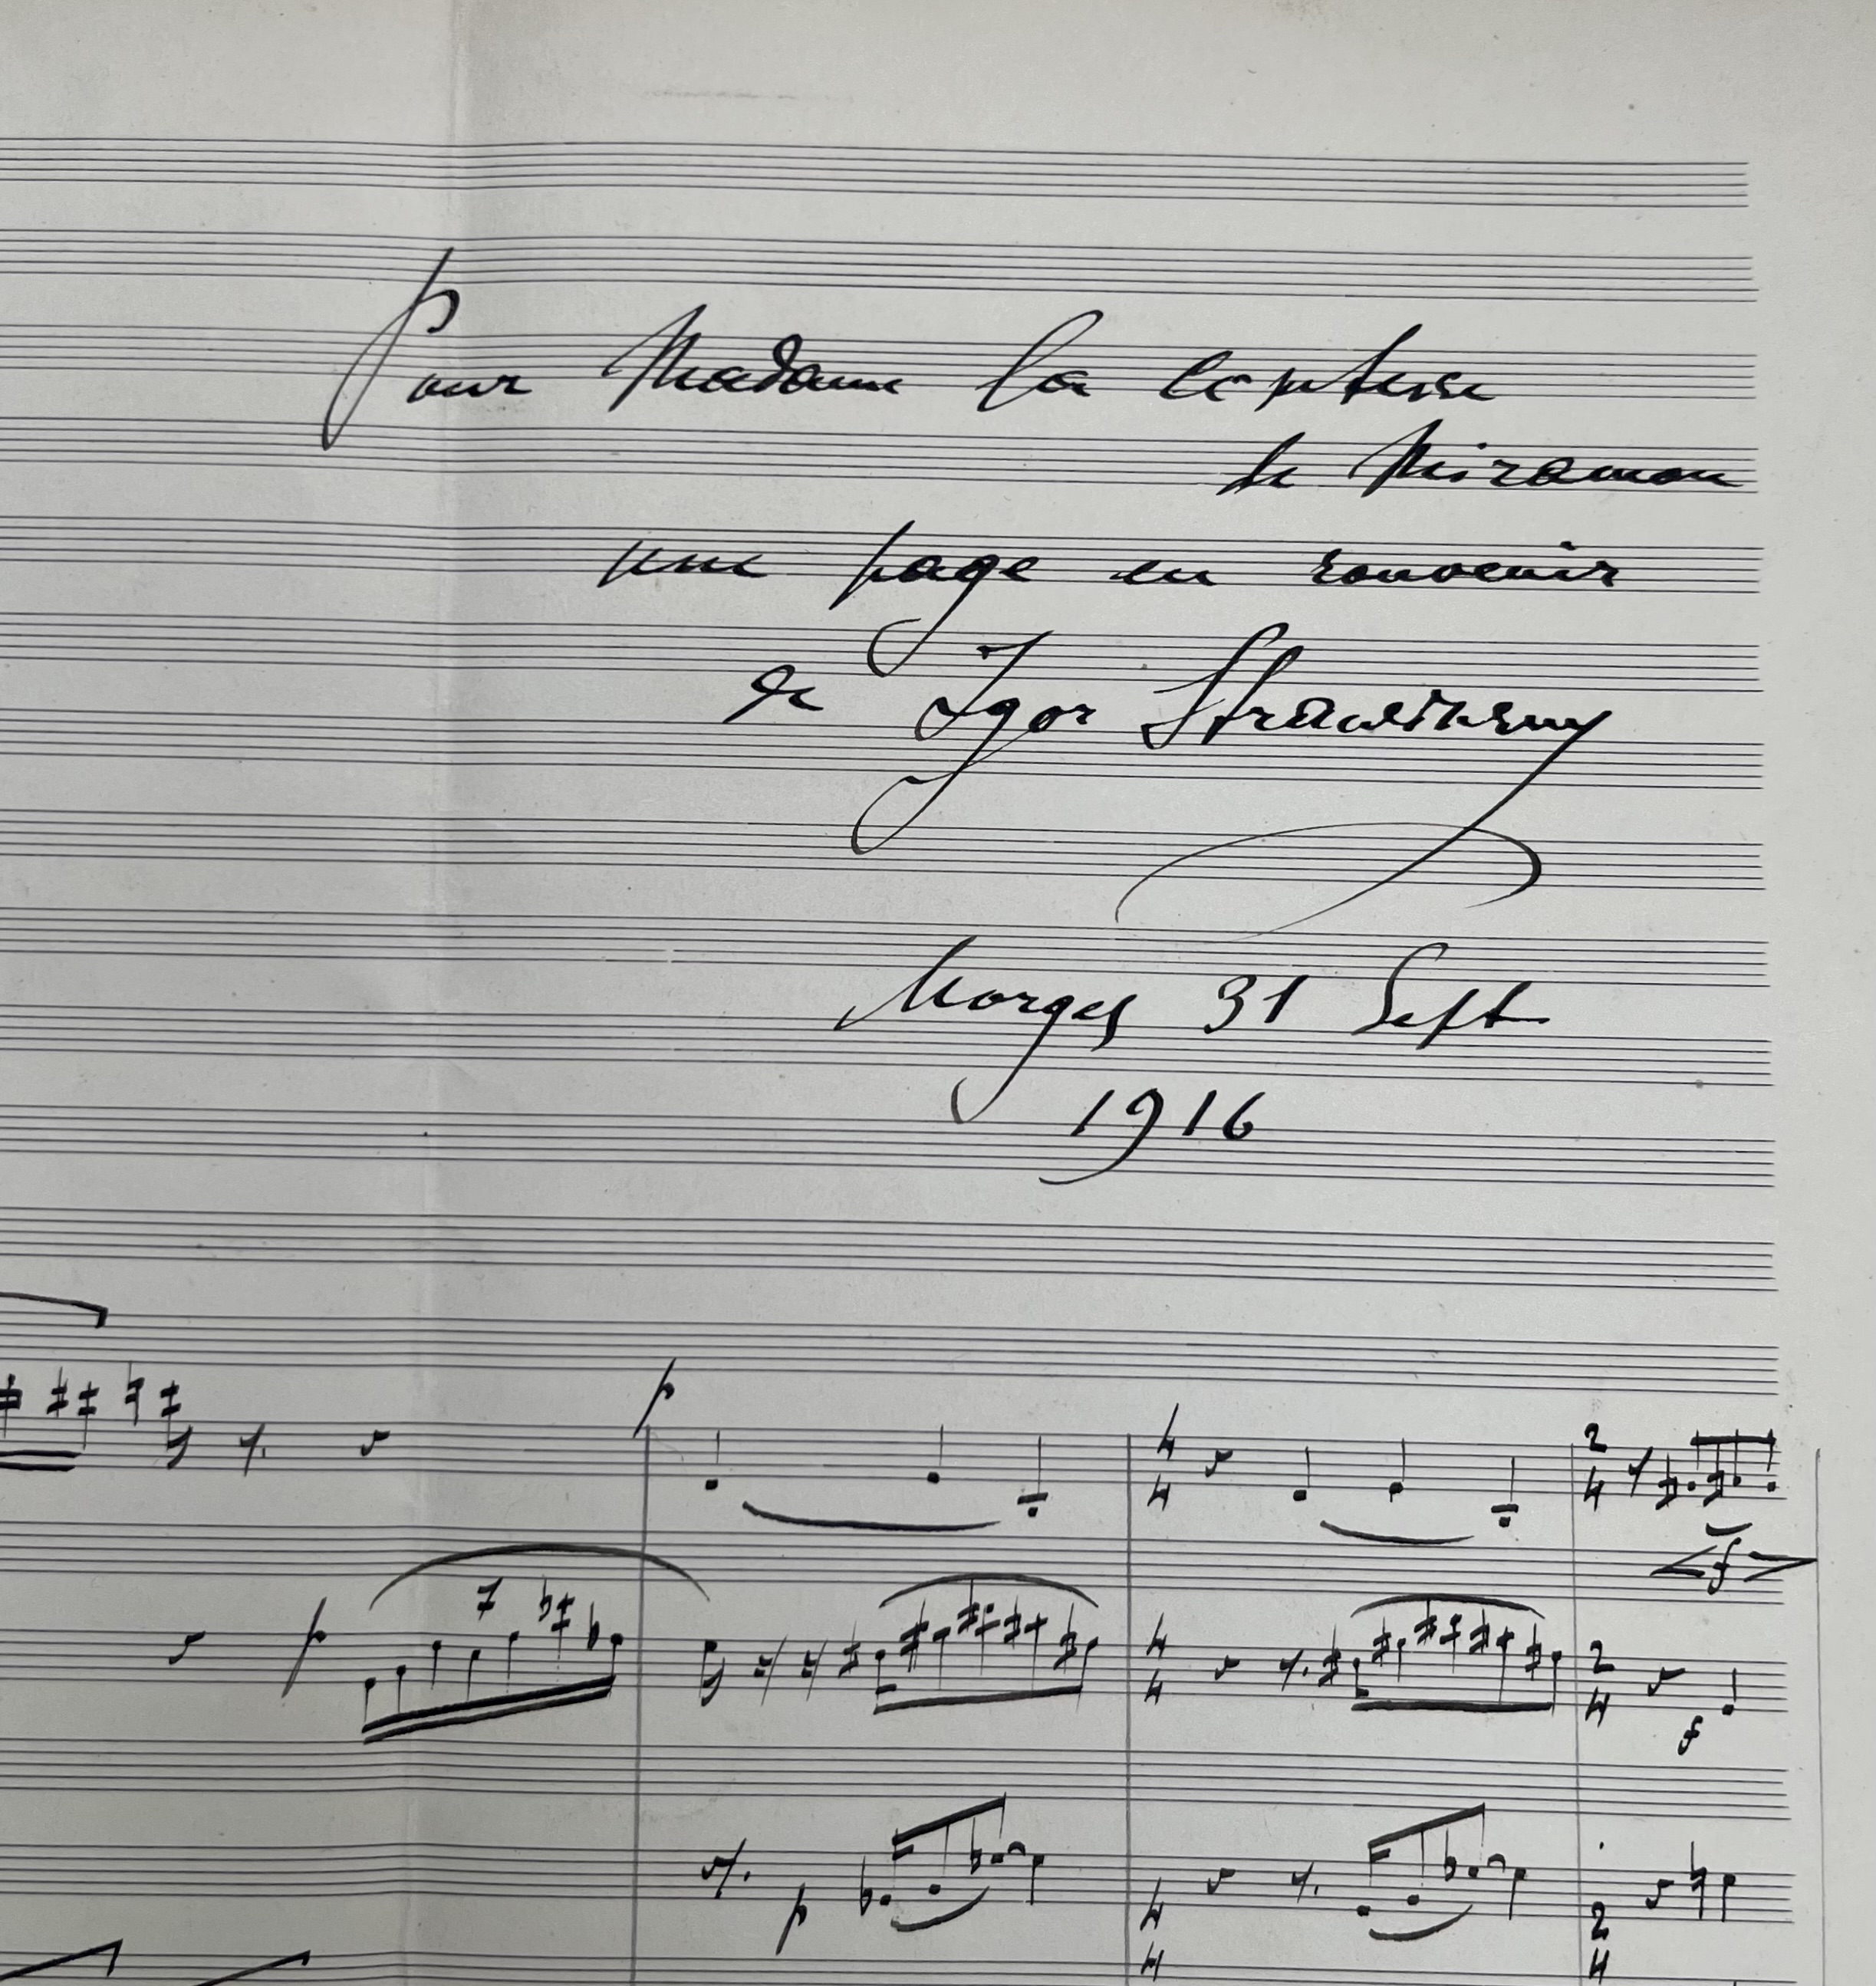 Pour Madame la comtesse
de Miramon
une page en souvenir
de Igor Strawinsky
Morges 31 Sept
1916
p
4
4
2
4
f
7
p
4
4
2
4
f
p
4
4
2
4